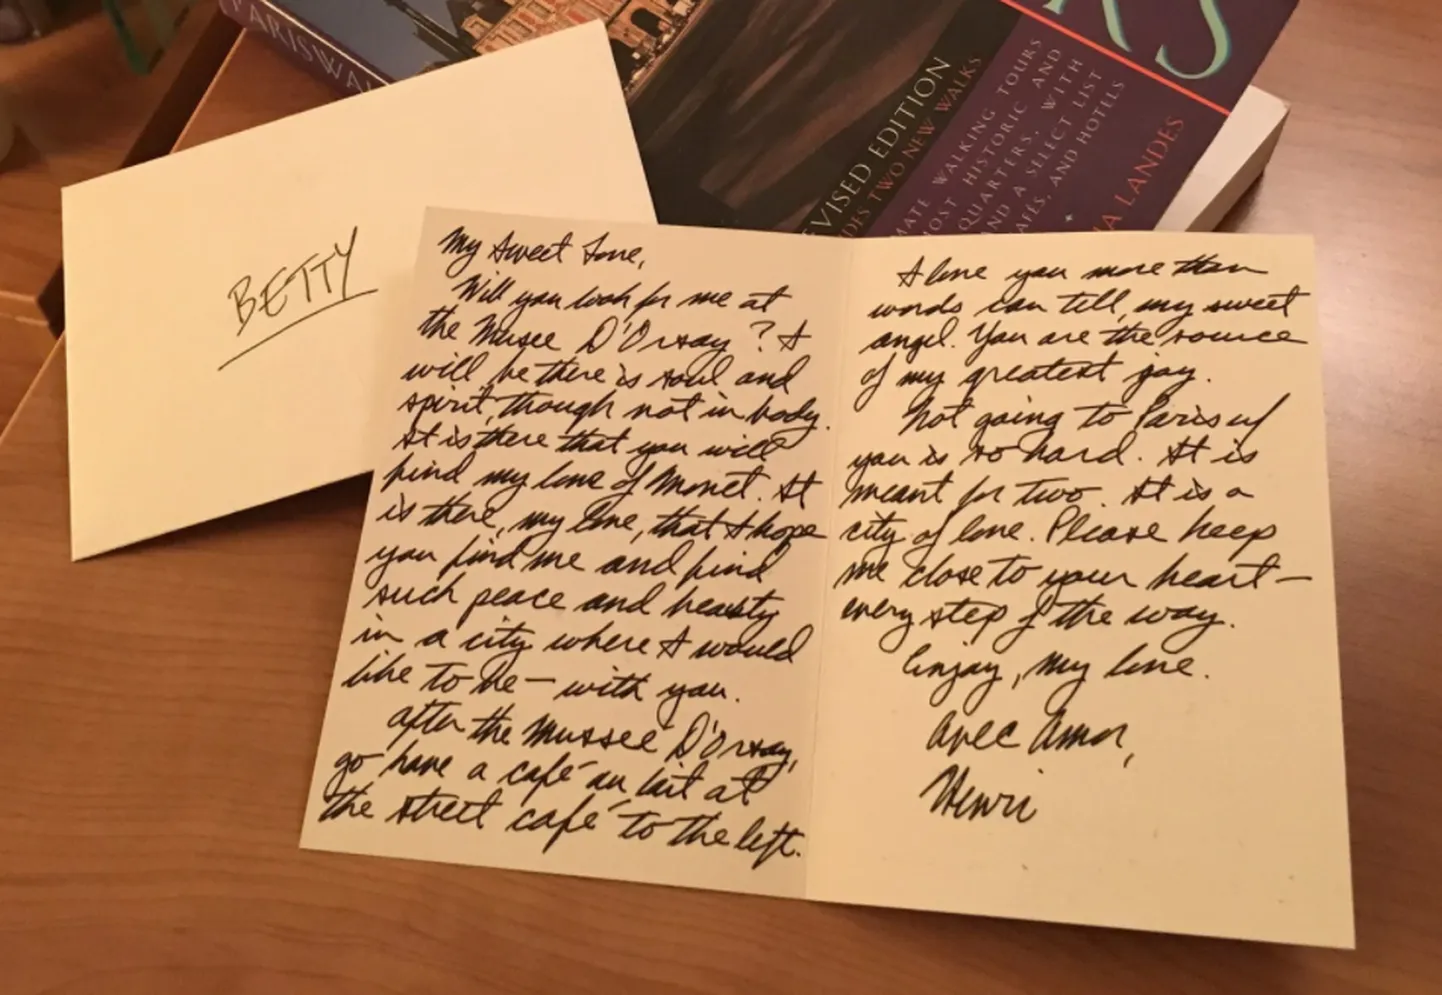 PARISWAL
KS
REVISED EDITION
DES TWO NEW WALKS
MATE WALKING TOURS
MOST HISTORIC AND
QUARTERS, WITH
AND A SELECT LIST
CAFÉS, AND HOTELS
A LANDES
BETTY
My Sweet Love,
Will you look for me at
the Musee D'Orsay? I
will be there is soul and
spirit, though not in body.
It is there that you will
find my love of Monet. It
is there, my love, that I hope
you find me and find
such peace and beauty
in a city where I would
like to be — with you.
After the Mussee D'Orsay,
go have a café au lait at
the street café to the left.
I love you more than
words can tell, my sweet
angel. You are the source
of my greatest joy.
Not going to Paris w/
you is so hard. It is
meant for two. It is a
city of love. Please keep
me close to your heart —
every step of the way.
Enjoy, my love.
Avec Amor,
Henri